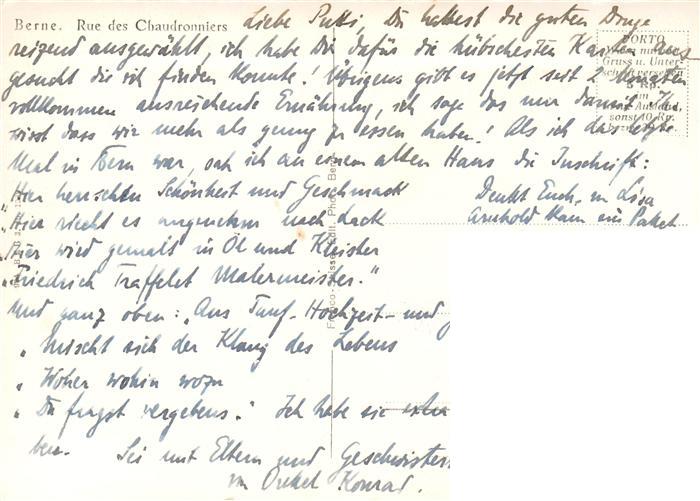 Berne. Rue des Chaudronniers
Liebe Putti, Du hattest die guten Dinge
reizend ausgewählt, ich habe Dir dafür die hübschesten Karten aus-
gesucht die ich finden konnte! Übrigens gibt es jetzt seit 2 Monaten
vollkommen ausreichende Ernährung, ich sage das nur damit Ihr
wisst dass wir mehr als genug zu essen haben! Als ich das letzte
Mal in Bern war, sah ich an einem alten Haus die Inschrift:
„Hier herrschen Schönheit und Geschmack
„Hier riecht es angenehm nach Lack
„Hier wird gemalt in Öl und Kleister
„Friedrich Traffelet Malermeister."
Und ganz oben: „Aus Tauf- Hochzeit- und
„Mischt sich der Klang des Lebens
„Woher wohin wozu
„Du fragst vergebens." Ich habe sie
ben. Sei mit Eltern und Geschwistern
Onkel Konrad.
Denkt Euch, Lisa
Arnhold kam ein Paket
PORTO
Gruss u. Unter-
5 Rp.
sonst 10 Rp.